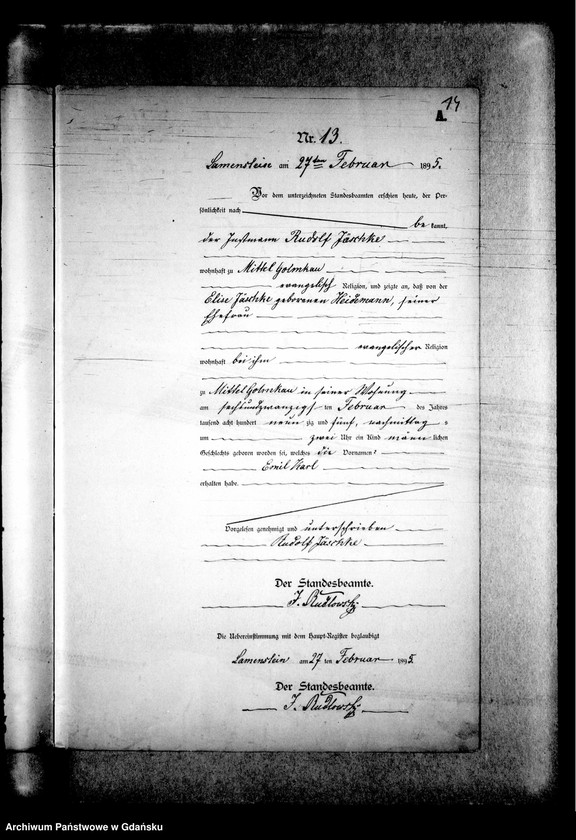 14
A.
Nr. 13.
Lamenstein am 27ten Februar 1895.
Vor dem unterzeichneten Standesbeamten erschien heute, der Per-
sönlichkeit nach
be kannt,
der Instmann Rudolf Jäschke
wohnhaft zu Mittel Golmkau
evangelisch Religion, und zeigte an, daß von der
Elise Jäschke geborenen Heidemann, seiner
Ehefrau
evangelischer Religion
wohnhaft bei ihm
zu Mittel Golmkau in seiner Wohnung
am sechsundzwanzigst ten Februar des Jahres
tausend acht hundert neun zig und fünf, nachmittag s
um zwei Uhr ein Kind männ lichen
Geschlechts geboren worden sei, welches die Vornamen
Emil Karl
erhalten habe.
Vorgelesen genehmigt und unterschrieben
Rudolf Jäschke
Der Standesbeamte.
Die Uebereinstimmung mit dem Haupt-Register beglaubigt
Lamenstein am 27 ten Februar 1895.
Der Standesbeamte.
Archiwum Państwowe w Gdańsku